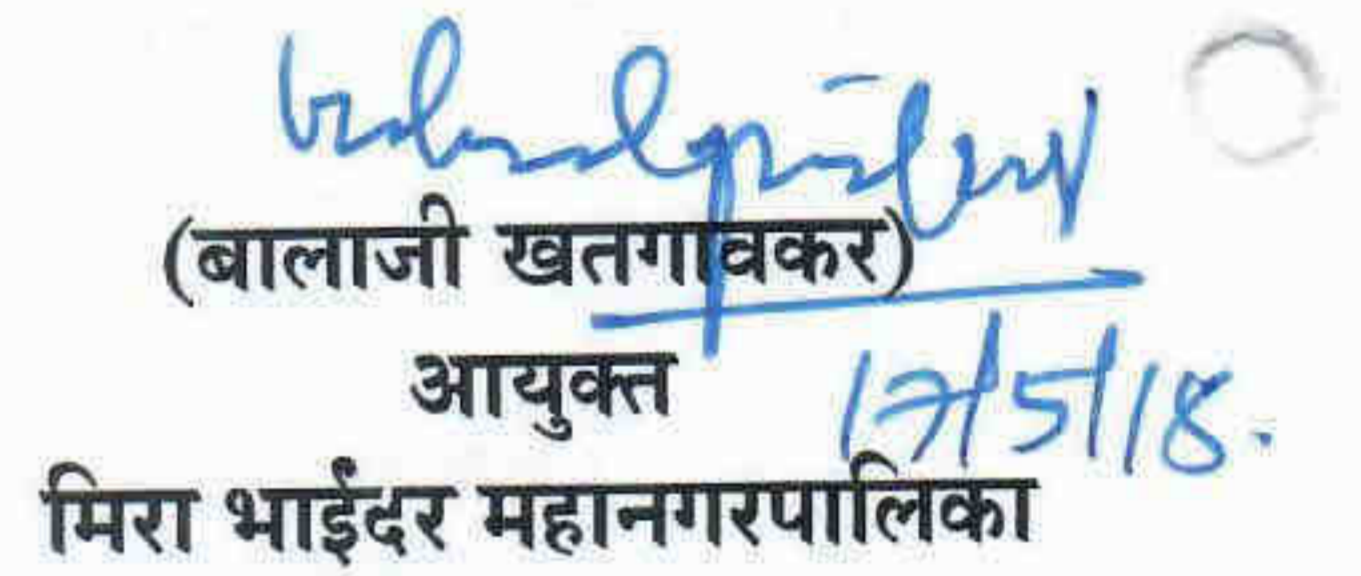 (बालाजी खतगावकर)
आयुक्त
17/5/18.
मिरा भाईंदर महानगरपालिका